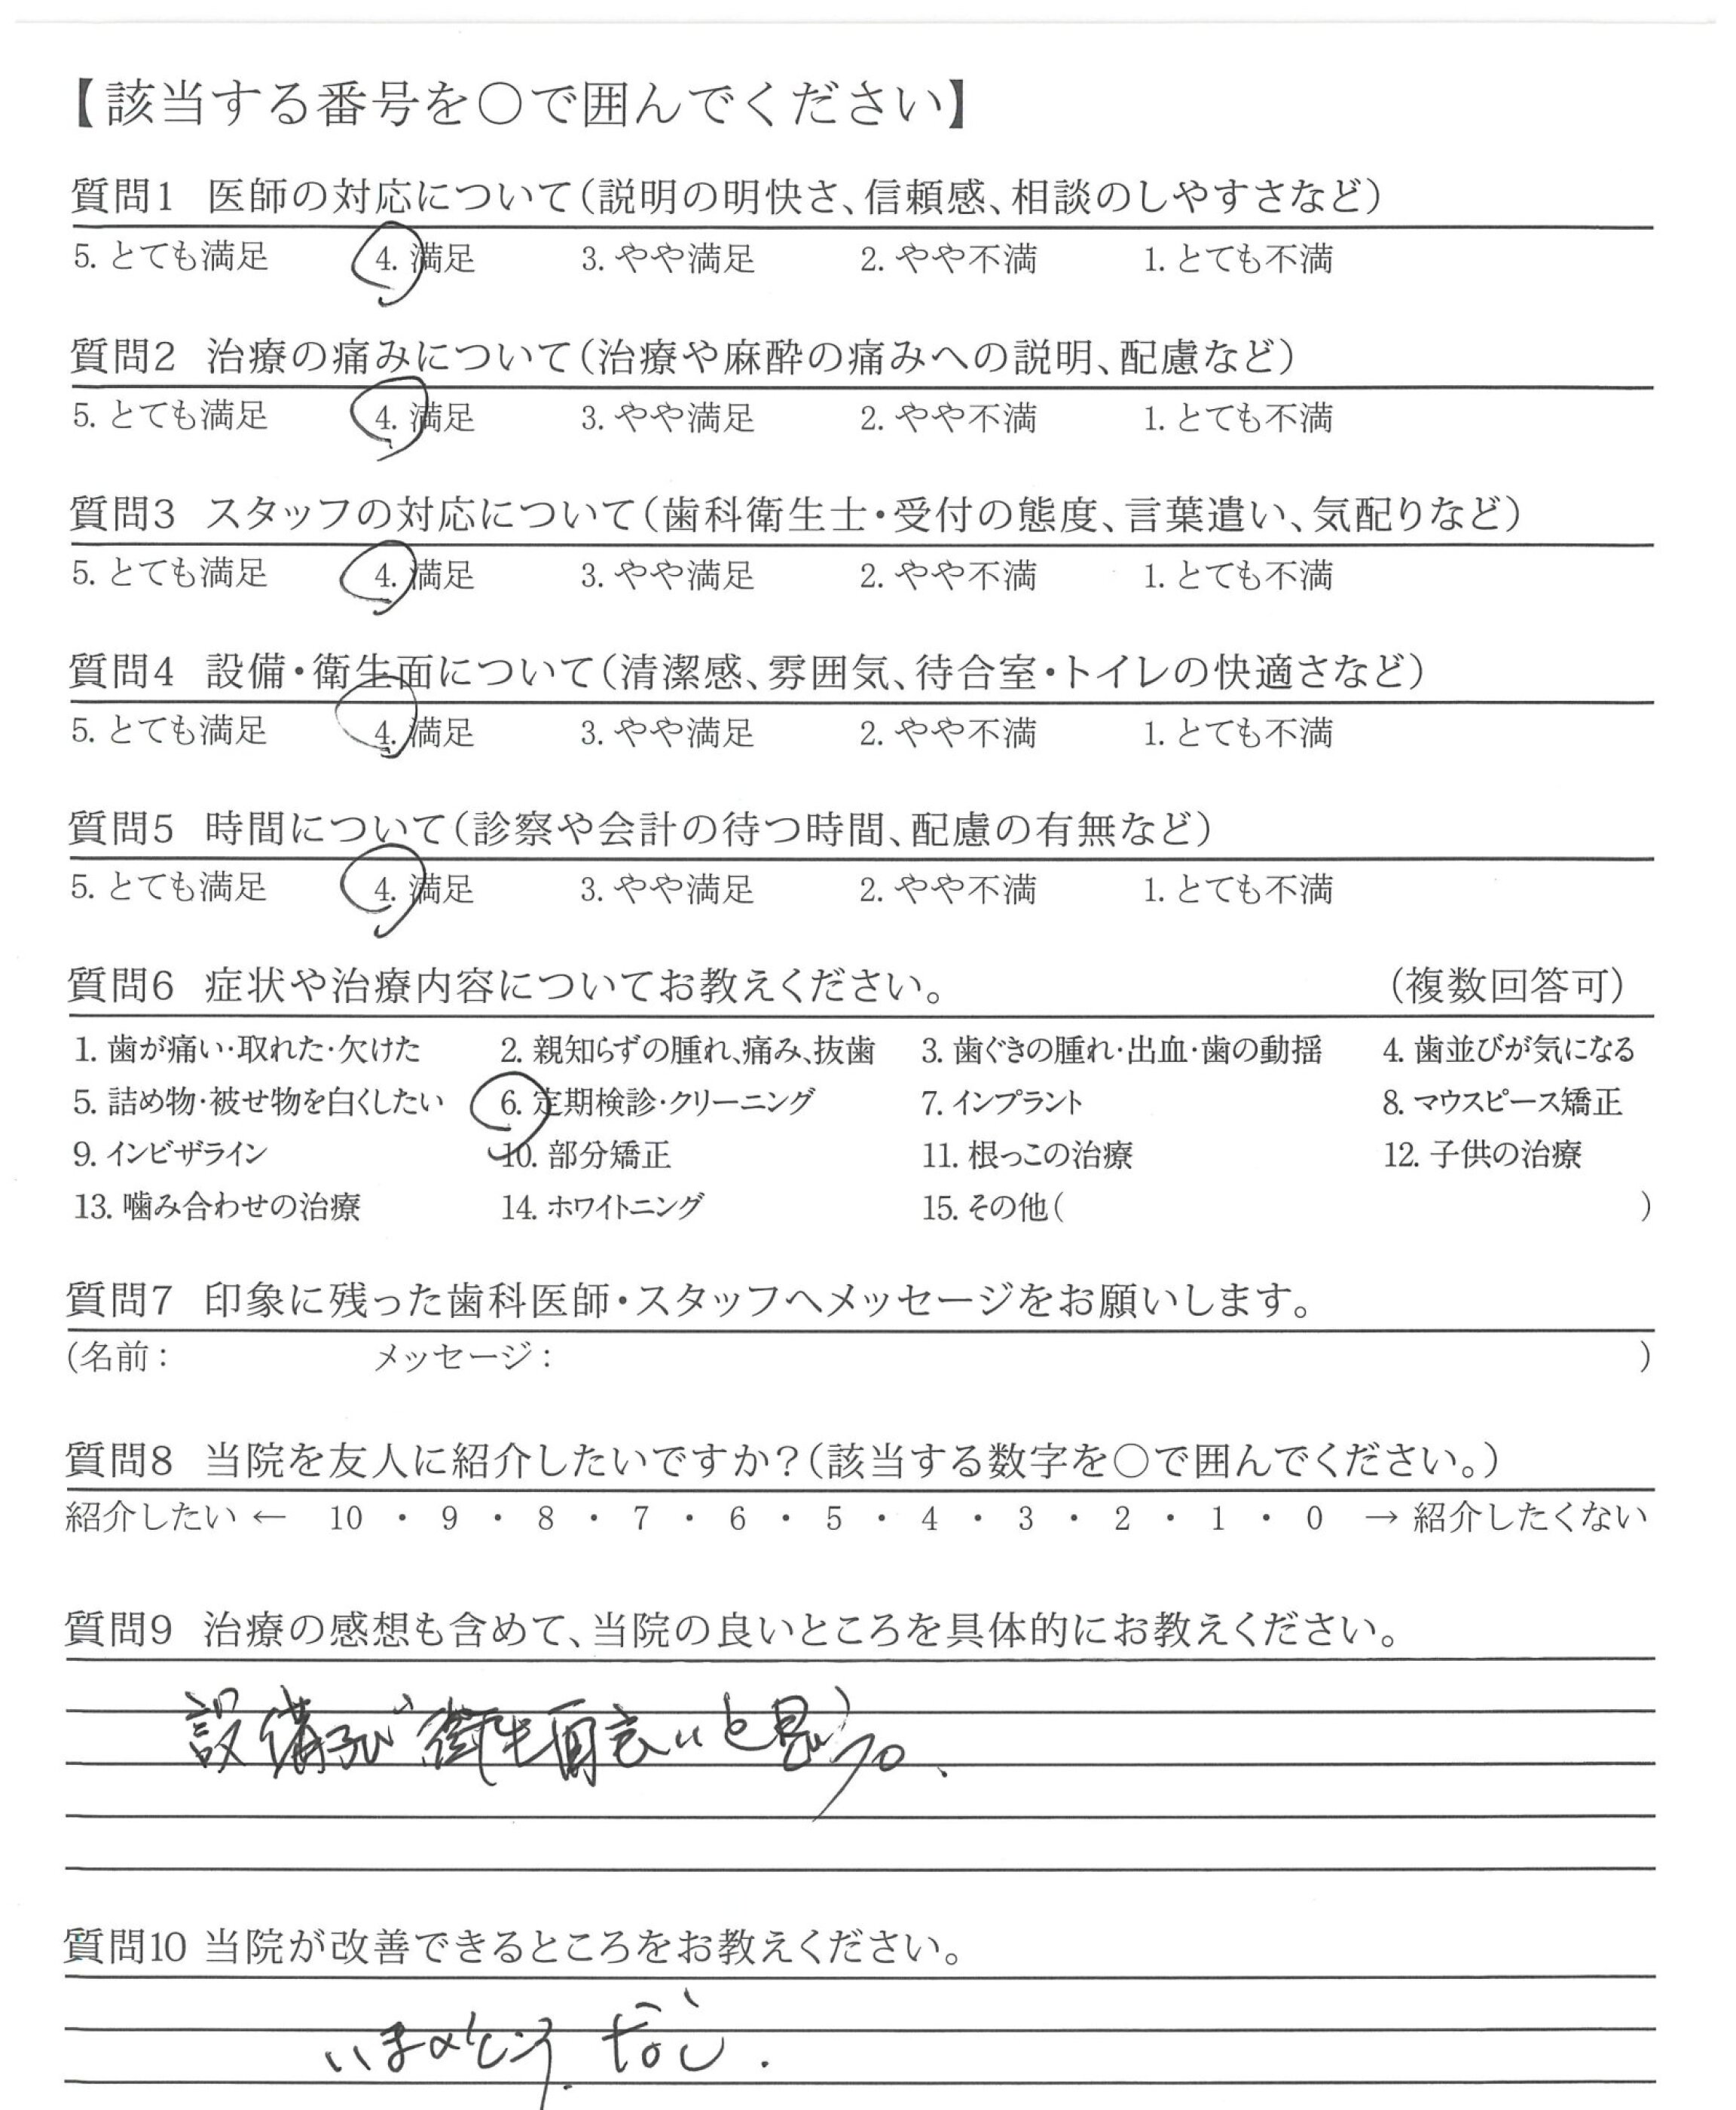 【該当する番号を○で囲んでください】
質問1 医師の対応について(説明の明快さ、信頼感、相談のしやすさなど)
5. とても満足 4. 満足 3. やや満足 2. やや不満 1. とても不満
質問2 治療の痛みについて(治療や麻酔の痛みへの説明、配慮など)
5. とても満足 4. 満足 3. やや満足 2. やや不満 1. とても不満
質問3 スタッフの対応について(歯科衛生士・受付の態度、言葉遣い、気配りなど)
5. とても満足 4. 満足 3. やや満足 2. やや不満 1. とても不満
質問4 設備・衛生面について(清潔感、雰囲気、待合室・トイレの快適さなど)
5. とても満足 4. 満足 3. やや満足 2. やや不満 1. とても不満
質問5 時間について(診察や会計の待つ時間、配慮の有無など)
5. とても満足 4. 満足 3. やや満足 2. やや不満 1. とても不満
質問6 症状や治療内容についてお教えください。 (複数回答可)
1. 歯が痛い・取れた・欠けた 2. 親知らずの腫れ、痛み、抜歯 3. 歯ぐきの腫れ・出血・歯の動揺 4. 歯並びが気になる
5. 詰め物・被せ物を白くしたい 6. 定期検診・クリーニング 7. インプラント 8. マウスピース矯正
9. インビザライン 10. 部分矯正 11. 根っこの治療 12. 子供の治療
13. 噛み合わせの治療 14. ホワイトニング 15. その他( )
質問7 印象に残った歯科医師・スタッフへメッセージをお願いします。
(名前: メッセージ: )
質問8 当院を友人に紹介したいですか?(該当する数字を○で囲んでください。)
紹介したい ← 10 ・ 9 ・ 8 ・ 7 ・ 6 ・ 5 ・ 4 ・ 3 ・ 2 ・ 1 ・ 0 → 紹介したくない
質問9 治療の感想も含めて、当院の良いところを具体的にお教えください。
設備及び衛生面良いと思う。
質問10 当院が改善できるところをお教えください。
いまのところ なし.